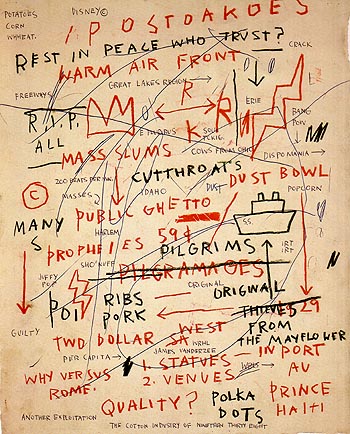 POTATOES
CORN
WHHEAT.
DISNEY©
IPOSTOAKOES
REST IN PEACE WHO TRUST?
WARM AIR FRONT
CRACK
GREAT LAKES REGION
FREEWAYS
R
ERIE
R.I.P.
R
BANG
POW
ALL
K
MASS SLUMS
COWS FROM CHIC
DISPOMANIA
CUTTHROATS
MASSES
IDAHO
DUST
DUST BOWL
©
POPCORN
MANY
PUBLIC GHETTO
S
HARLEM
59¢
SS
PROPHEIES
PILGRIMS
IRT
IRT
SHO'NUFF
PILGRAMAGES
JIFFY
POP
ORIGINAL
ORIGINAL
POI
RIBS
PORK
THIEVES
29
GUILTY
WEST
FROM
TWO DOLLAR
THE MAYFLOWER
JAMES VANDERZEE
PER CAPITA
1. STATUES
IN PORT
2. VENUES
AU
WHY VERSUS
ROME.
PRINCE
QUALITY?
POLKA
HAITI
DOTS
ANOTHER EXPLOITATION
THE COTTON INDUSTRY OF NINETEEN THIRTY EIGHT